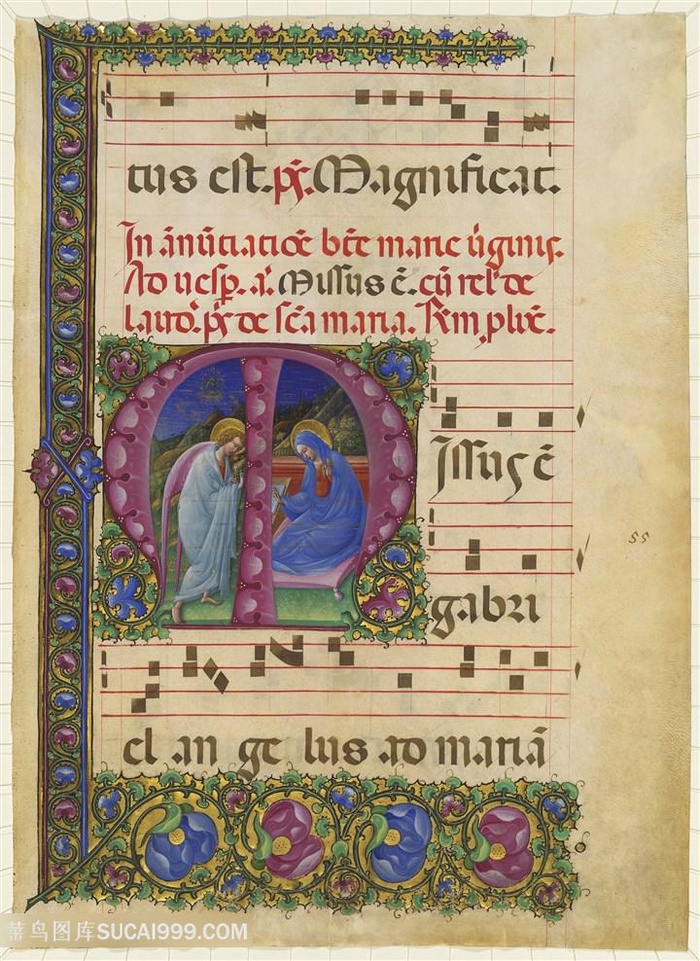 tus est. p̃s. Magnificat.
In ãnũtiatiõe bẽte marie ũginis.
Ad uesp. a. Missus ẽ. cũ rel' de
laud. p̃s de sc̃a maria.
Issus ẽ
55
gabri
el an ge lus ad mariã
菜鸟图库SUCAI999.COM